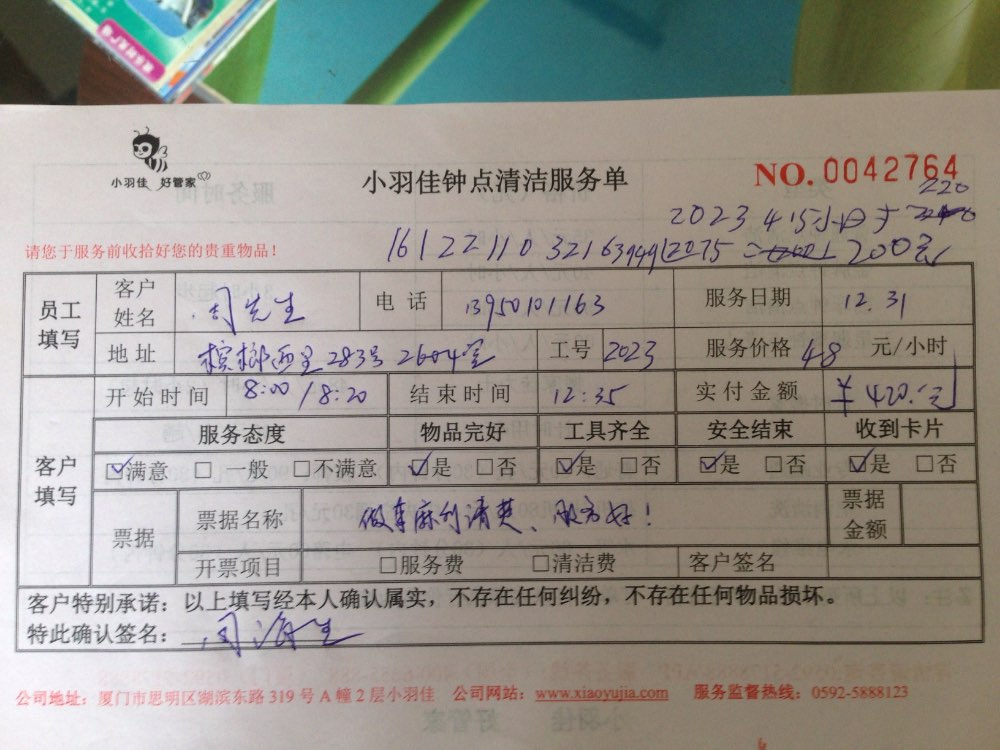 小羽佳 好管家
小羽佳钟点清洁服务单
NO. 0042764
220
2023 4.15小时
200元
请您于服务前收拾好您的贵重物品！
员工填写 客户姓名 周先生 电话 13950101163 服务日期 12.31
地址 槟榔西里283号2604室 工号 2023 服务价格 48 元/小时
客户填写 开始时间 8:00 / 8:20 结束时间 12:35 实付金额 ¥420.元
服务态度 物品完好 工具齐全 安全结束 收到卡片
☑满意 □一般 □不满意 ☑是 □否 ☑是 □否 ☑是 □否 ☑是 □否
票据 票据名称 做事麻利清楚、服务好！ 票据金额
开票项目 □服务费 □清洁费 客户签名
客户特别承诺：以上填写经本人确认属实，不存在任何纠纷，不存在任何物品损坏。
特此确认签名：周海生
公司地址：厦门市思明区湖滨东路 319 号 A 幢 2 层小羽佳 公司网站：www.xiaoyujia.com 服务监督热线：0592-5888123